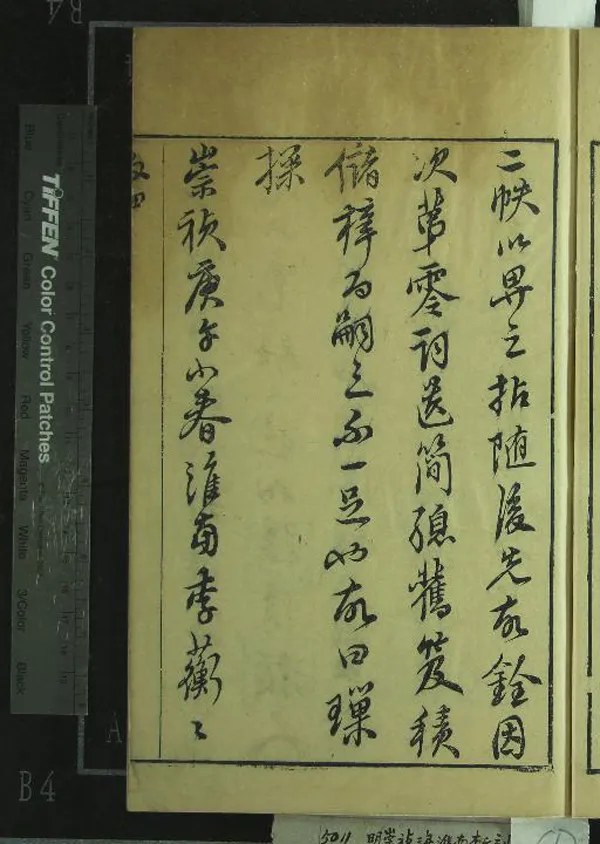 二帙以畀之拈随後先故銓因
次苐零詞逸简舊笈積
儲梓為嗣之不一足以故曰璅
探
崇禎庚午小春淮南李蘅
TIFFEN Color Control Patches
Blue Cyan Green Yellow Red Magenta White 3/Color Black
B4
A
B4
5011 明崇禎